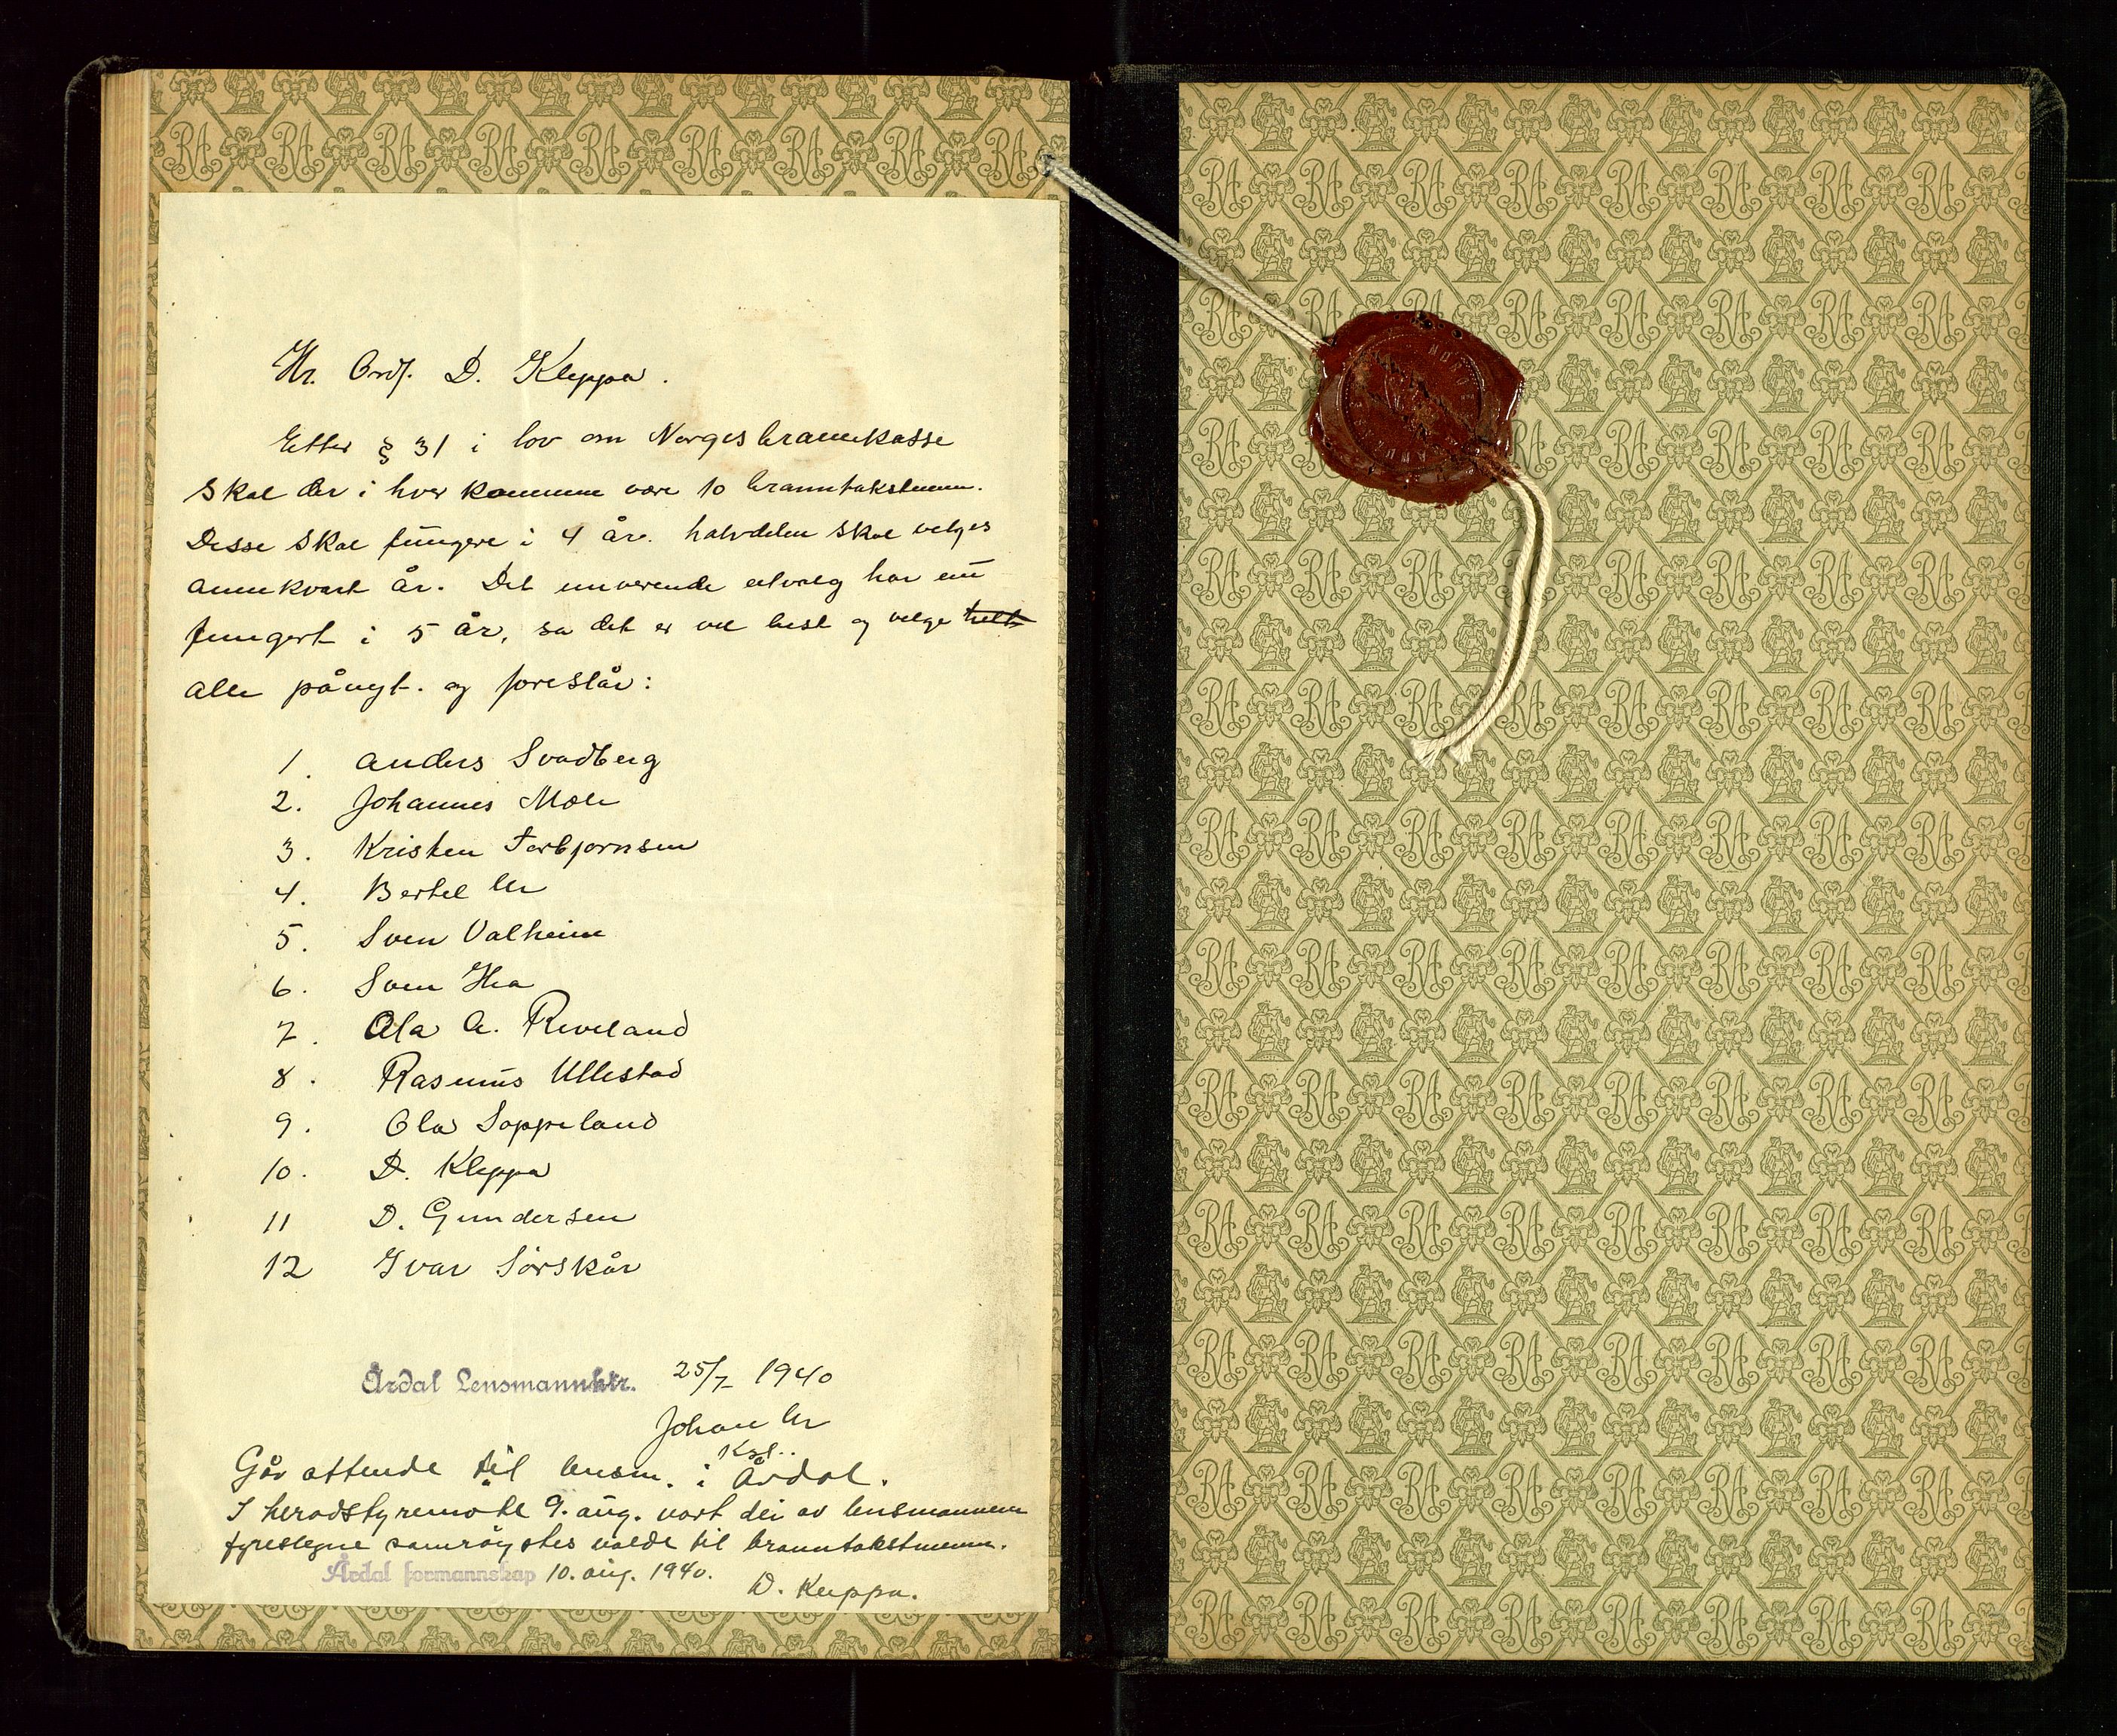 Hr. Ordf. D. Kleppa.
Etter § 31 i lov om Norges brannkasse
skal der i hver kommune være 10 branntakstmenn.
Disse skal fungere i 4 år. halvdelen skal velges
annenkvart år. Det nuværende utvalg har nu
fungert i 5 år, sa det er vel best og velge helt
alle pånyt. og foreslår:
1. Anders Svadberg
2. Johannes Mæle
3. Kristen Torbjørnsen
4. Bertel Ur
5. Sven Valheim
6. Sven Hia
7. Ola A. Riveland
8. Rasmus Ullestad
9. Ola Soppeland
10. D. Kleppa
11 D. Gundersen
12 Ivar Sørskår
Årdal Lensmannktr. 25/7 1940
Johan Ur
Kst..
Går attende til lensm. i Årdal.
I heradstyremøte 9. aug. vart dei av lensmannen
fyreslegne samrøystes valde til branntakstmenn.
Årdal formannskap 10. aug. 1940.
D. Kleppa.